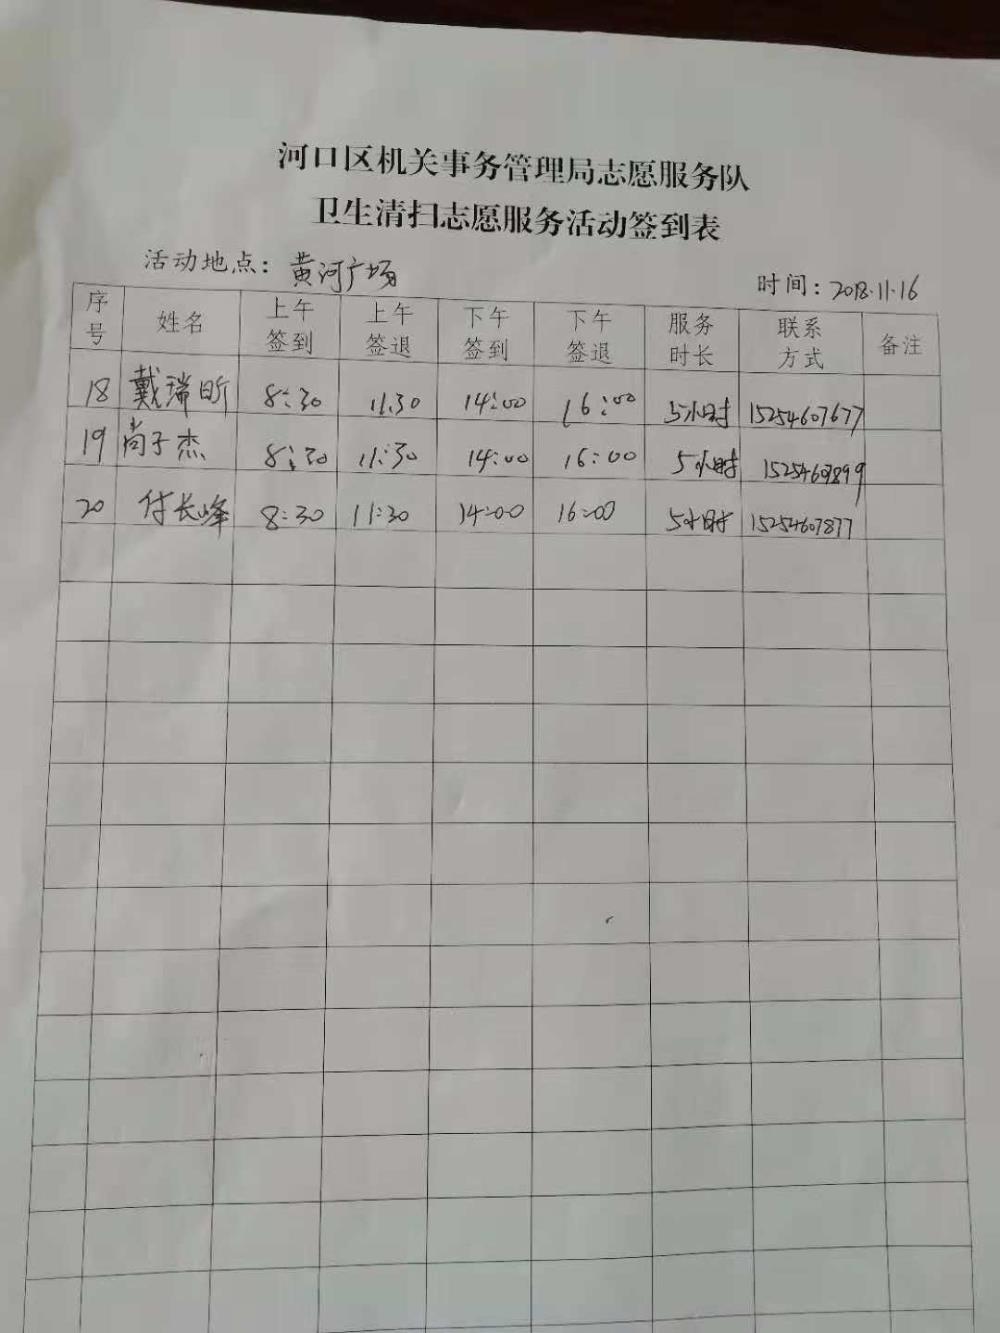 河口区机关事务管理局志愿服务队
卫生清扫志愿服务活动签到表
活动地点：黄河广场 时间：2018.11.16
序号 姓名 上午签到 上午签退 下午签到 下午签退 服务时长 联系方式 备注
18 戴瑞昕 8:30 11:30 14:00 16:00 5小时 15254607677
19 尚子杰 8:30 11:30 14:00 16:00 5小时
20 付长峰 8:30 11:30 14:00 16:00 5小时 15254607877